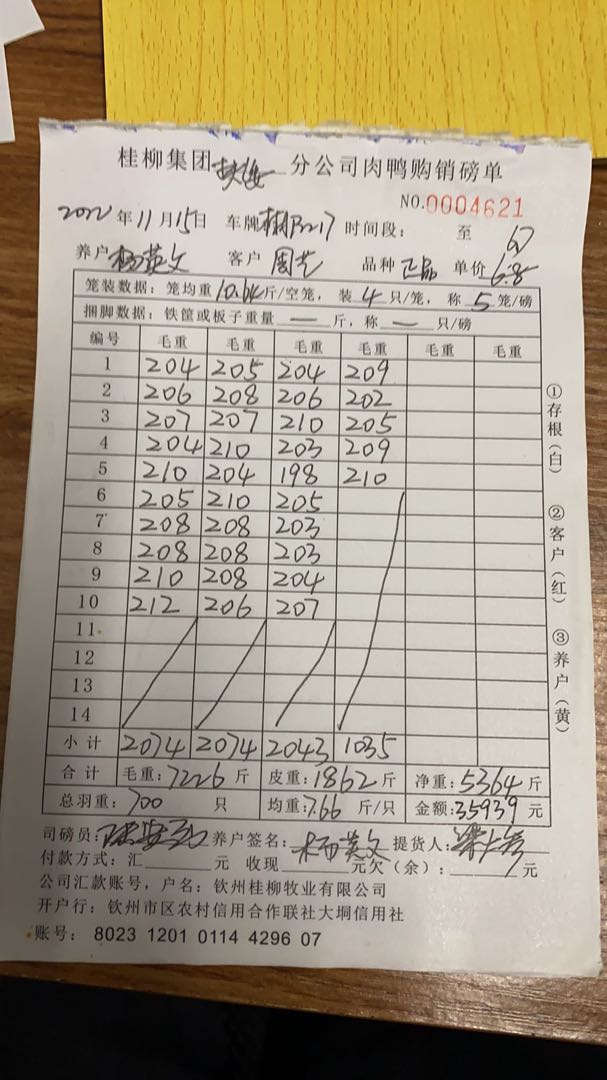 桂柳集团 分公司肉鸭购销磅单
NO.0004621
2022年11月15日 车牌 时间段： 至
养户 杨英文 客户 周 品种 正品 单价 6.8
笼装数据：笼均重10.64斤/空笼，装 4 只/笼，称 5 笼/磅
捆脚数据：铁筐或板子重量 — 斤，称 — 只/磅
编号 毛重 毛重 毛重 毛重 毛重 毛重
1 204 205 204 209
2 206 208 206 202
3 207 207 210 205
4 204 210 203 209
5 210 204 198 210
6 205 210 205
7 208 208 203
8 208 208 203
9 210 208 204
10 212 206 207
11
12
13
14
小计 2074 2074 2043 1035
合计 毛重：7226斤 皮重：1862斤 净重：5364斤
总羽重：700 只 均重：7.66 斤/只 金额：35939元
司磅员： 养户签名：杨英文 提货人：
付款方式：汇 元 收现 元欠（余）： 元
公司汇款账号，户名：钦州桂柳牧业有限公司
开户行：钦州市区农村信用合作联社大垌信用社
账号：8023 1201 0114 4296 07
①存根（白）
②客户（红）
③养户（黄）